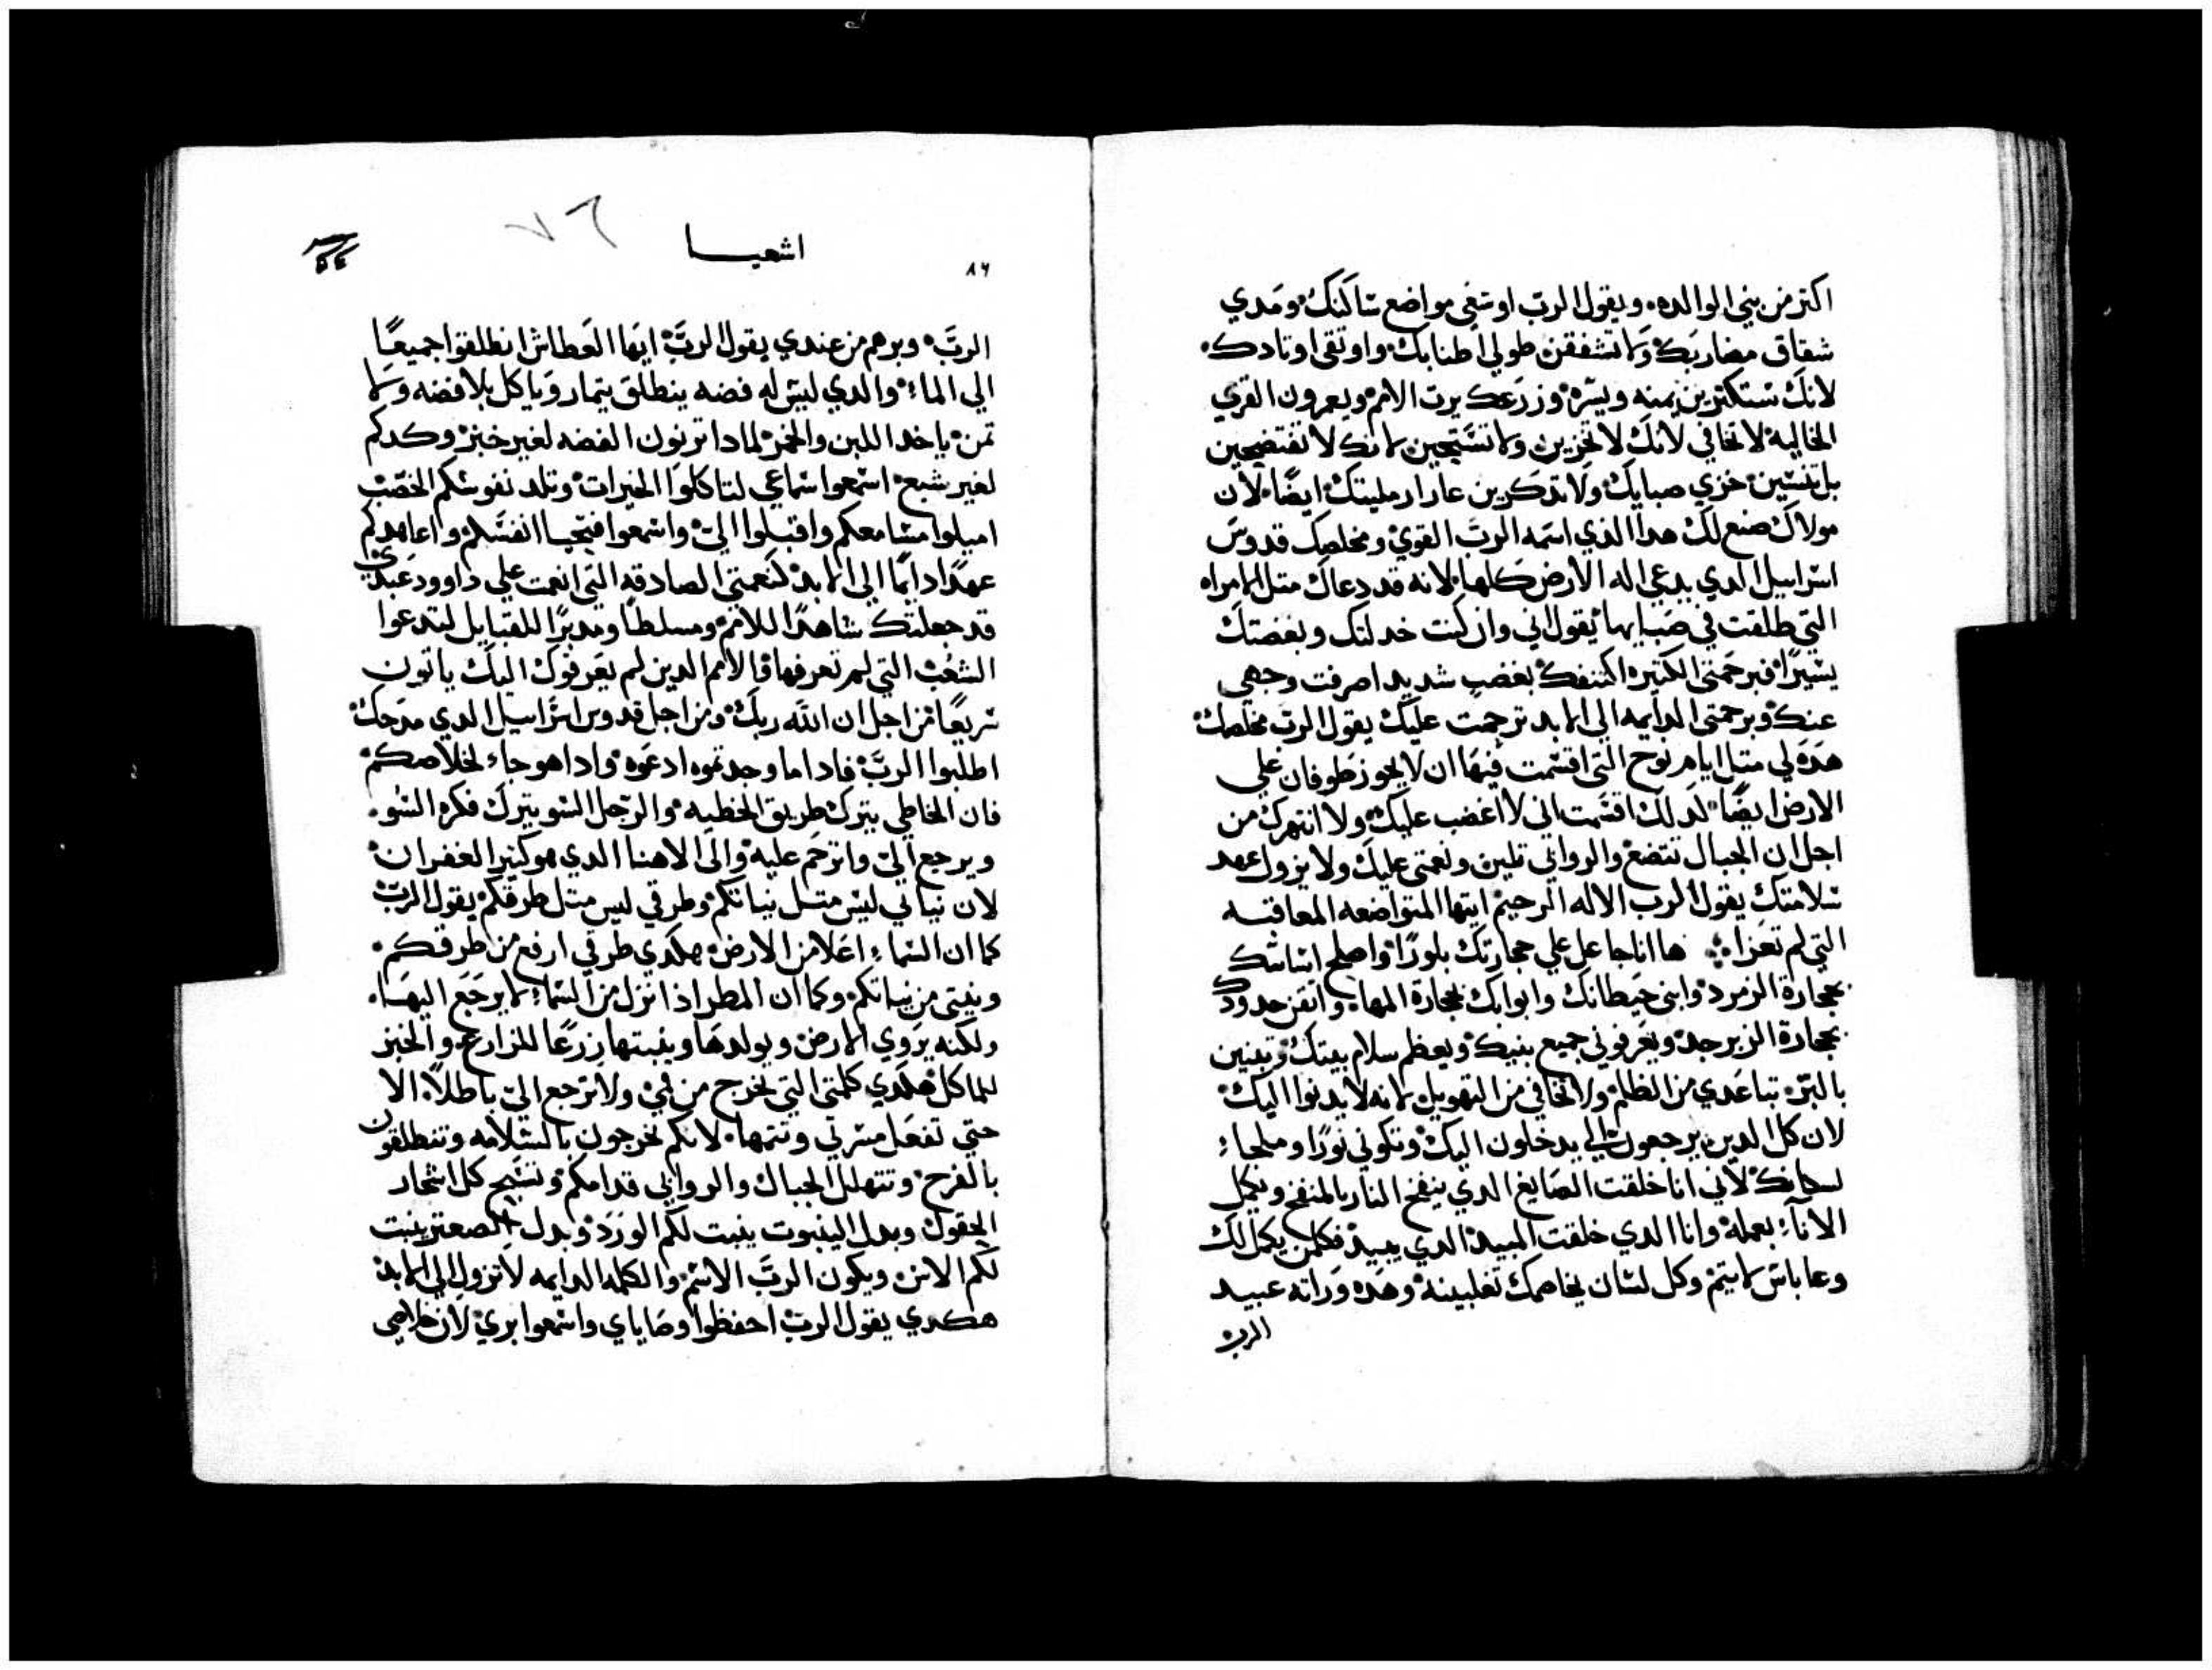 اكتر من بني الوالده. ويقول الرب اوسعي مواضع ساكنك ومدي
شقاق مضاربك ولا تشفقن طولي اطنابك واوتقي اوتادك.
لانك تستكترين يمنه ويسره وزرعك يرت الامم ويعمرون القري
الخاليه لا تخافي لانك لا تخزين ولا تستحين لانك لا تفتضحين
بل تنسين خزي صبايك ولا تدكرين عار ارمليتك ايضا. لان
مولاك صنع لك هدا الذي اسمه الرب القوي ومخلصك قدوس
اسراييل الدي يدعي اله الارض كلها لانه قد دعاك متل الامراه
التي طلقت في صباها يقول اني وان كنت خدلتك وبغضتك
يسيرا فبرحمتي الكتيره اكتنفك بغضب شديد اصرفت وجهي
عنك وبرحمتي الدايمه الي الابد ترحمت عليك يقول الرب مخلصك
هده لي متل ايام نوح التي اقسمت فيها ان لا يجوز طوفان علي
الارض ايضا لدلك اقسمت اني لا اغضب عليك ولا انتهرك من
اجل ان الجبال تتضع والروابي تلين ونعمتي عليك ولا يزول عهد
سلامتك يقول الرب الاله الرحيم ايتها المتواضعه المعاقبه
التي لم تعزا ها انا جاعل علي حجارتك بلورا واصلح اساسك
بحجارة الزمرد وابني حيطانك وابوابك بحجارة المها واتقن حدودك
بحجارة الزبرجد ويعرفوني جميع بنيك ويعظم سلام بيتك وتبنين
بالبر تباعدي من الظلم ولا تخافي من التهويل لانه لا يدنوا اليك
لان كل الدين يرجعون الي يدخلون اليك وتكوني نورا وملجاء
لسكانك لاني انا خلقت الصايغ الدي ينفخ النار بالمنفخ ويكمل
الاناء بعمله وانا الدي خلقت المبيد الدي يبيد فكلمن يكمل لك
وعا باس لا يتم وكل لسان يخاصمك تغلبينه وهده وراته عبيد
الرب
اشعيا
٧٦
٨٦
الرب وبرهم من عندي يقول الرب ايها العطاش انطلقوا جميعا
الي الماء والدي ليس له فضه ينطلق يتمار وياكل بلا فضه ولا
تمن ياخد اللبن والخمر لمادا ترنون الفضه لغير خبز وكدكم
لغير شبع اسمعوا سماعي لتاكلوا الخيرات وتلد نفوسكم الخصب
اميلوا مسامعكم واقبلوا الي واسمعوا فتحيا انفسكم واعاهدكم
عهدا دايما الي الابد كنعمتي الصادقه التي انعمت علي داوود عبدي
قد جعلتك شاهدا للامم ومسلطا ومدبرا للقبايل لتدعوا
الشعب التي لم تعرفها فالامم الدين لم يعرفوك اليك ياتون
سريعا من اجل ان الله ربك ومن اجل قدوس اسراييل الدي مدحك
اطلبوا الرب فادا ما وجدتموه ادعوه وادا هو جاء لخلاصكم
فان الخاطي يترك طريق الخطيه والرجل السو يترك فكره السو.
ويرجع الي واترحم عليه والي الاهنا الدي هو كتير الغفران
لان نياتي ليس متل نياتكم وطرقي ليس متل طرقكم يقول الرب
كما ان السماء اعلا من الارض هكدي طرقي ارفع من طرقكم.
ونيتي من نياتكم وكما ان المطر اذا نزل من السماء لا يرجع اليها.
ولكنه يروي الارض ويولدها وينبتها زرعا للزارع والخبز
للماكل هكدي كلمتي التي تخرج من في ولا ترجع الي باطلا الا
حتي تفعل مسرتي وتتمها. لانكم تخرجون بالسلامه وتنطلقون
بالفرح وتتهلل الجبال والروابي قدامكم وتسبح كل اشجار
الحقول وبدل الينبوت ينبت لكم الورد وبدل الصعتر ينبت
لكم الاس ويكون الرب الاسم والكلمه الدايمه لا تزول الي الابد
هكدي يقول الرب احفظوا وصاياي واسمعوا بري لان خلاصي